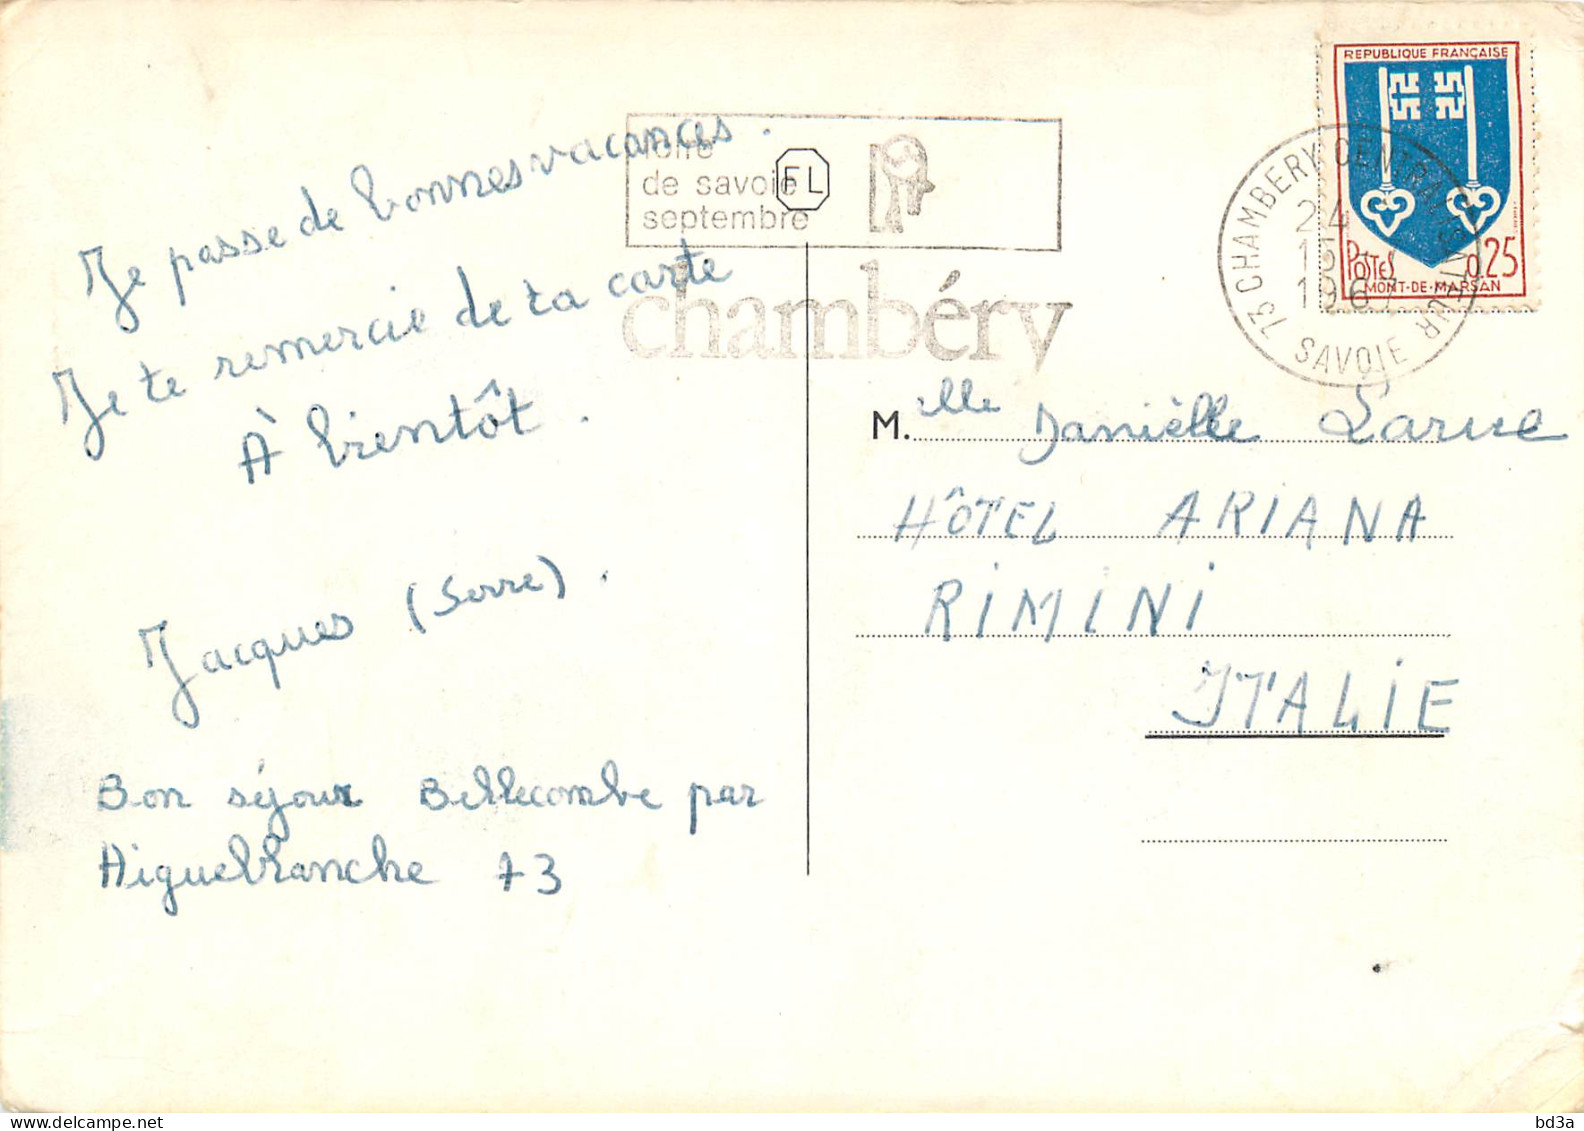 Je passe de bonnes vacances.
Je te remercie de ta carte
À bientôt.
Jacques (Serre).
Bon séjour Bellecombe par
Aigueblanche 73
foire
de savoie
septembre
EL
chambéry
REPUBLIQUE FRANÇAISE
POSTES 0,25
MONT-DE-MARSAN
73 CHAMBERY CENTRALISATEUR
SAVOIE
24
15
196
M.elle Danièlle Larue
HÔTEL ARIANA
RIMINI
ITALIE
bd3a